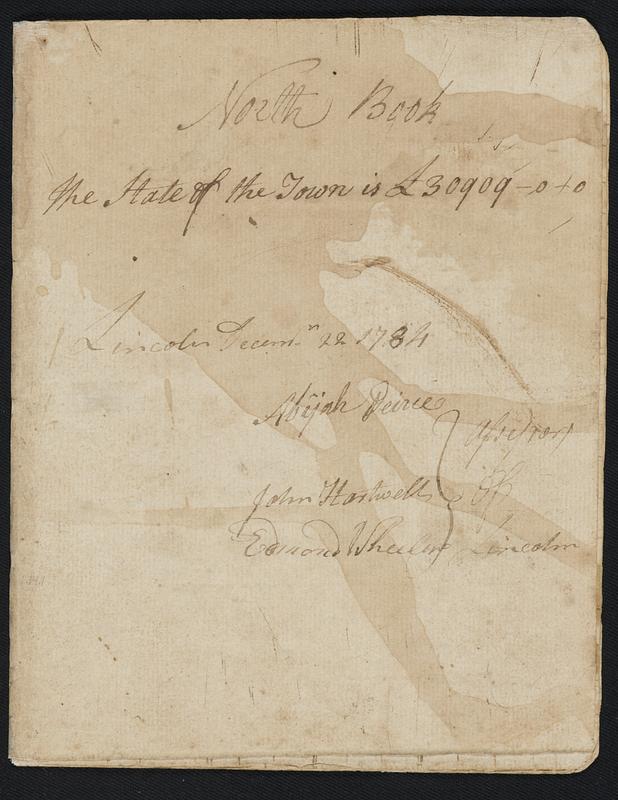 North Book
the State of the Town is £30909-0+0
Lincoln Decemr 22 1784
Abijah Peirce
Assessors
John Hartwell
of
Edmond Wheeler Lincoln